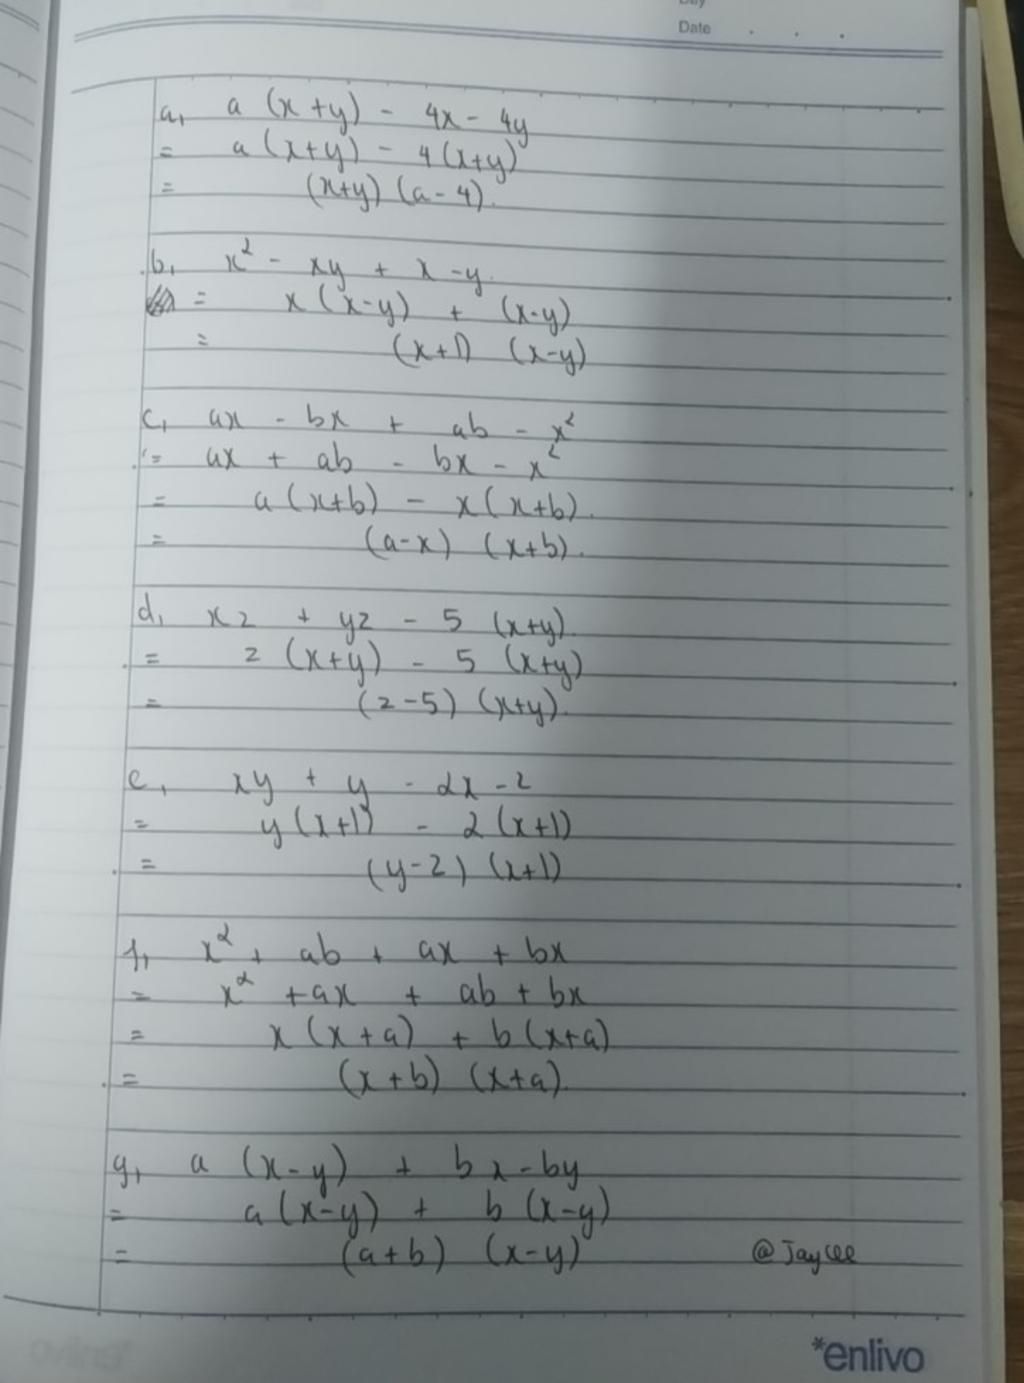 Day
Date . . .
a, a (x+y) - 4x - 4y
= a (x+y) - 4 (x+y)
= (x+y) (a-4).
b, x² - xy + x - y.
= x (x-y) + (x-y)
= (x+1) (x-y)
c, ax - bx + ab - x²
= ax + ab - bx - x²
= a (x+b) - x (x+b).
= (a-x) (x+b).
d, xz + yz - 5 (x+y)
= z (x+y) - 5 (x+y)
= (z-5) (x+y).
e, xy + y - 2x - 2
= y (x+1) - 2 (x+1)
= (y-2) (x+1)
f, x² + ab + ax + bx
= x² + ax + ab + bx
= x (x+a) + b (x+a)
= (x+b) (x+a).
g, a (x-y) + bx - by
= a (x-y) + b (x-y)
= (a+b) (x-y)
@Jaycee
*enlivo